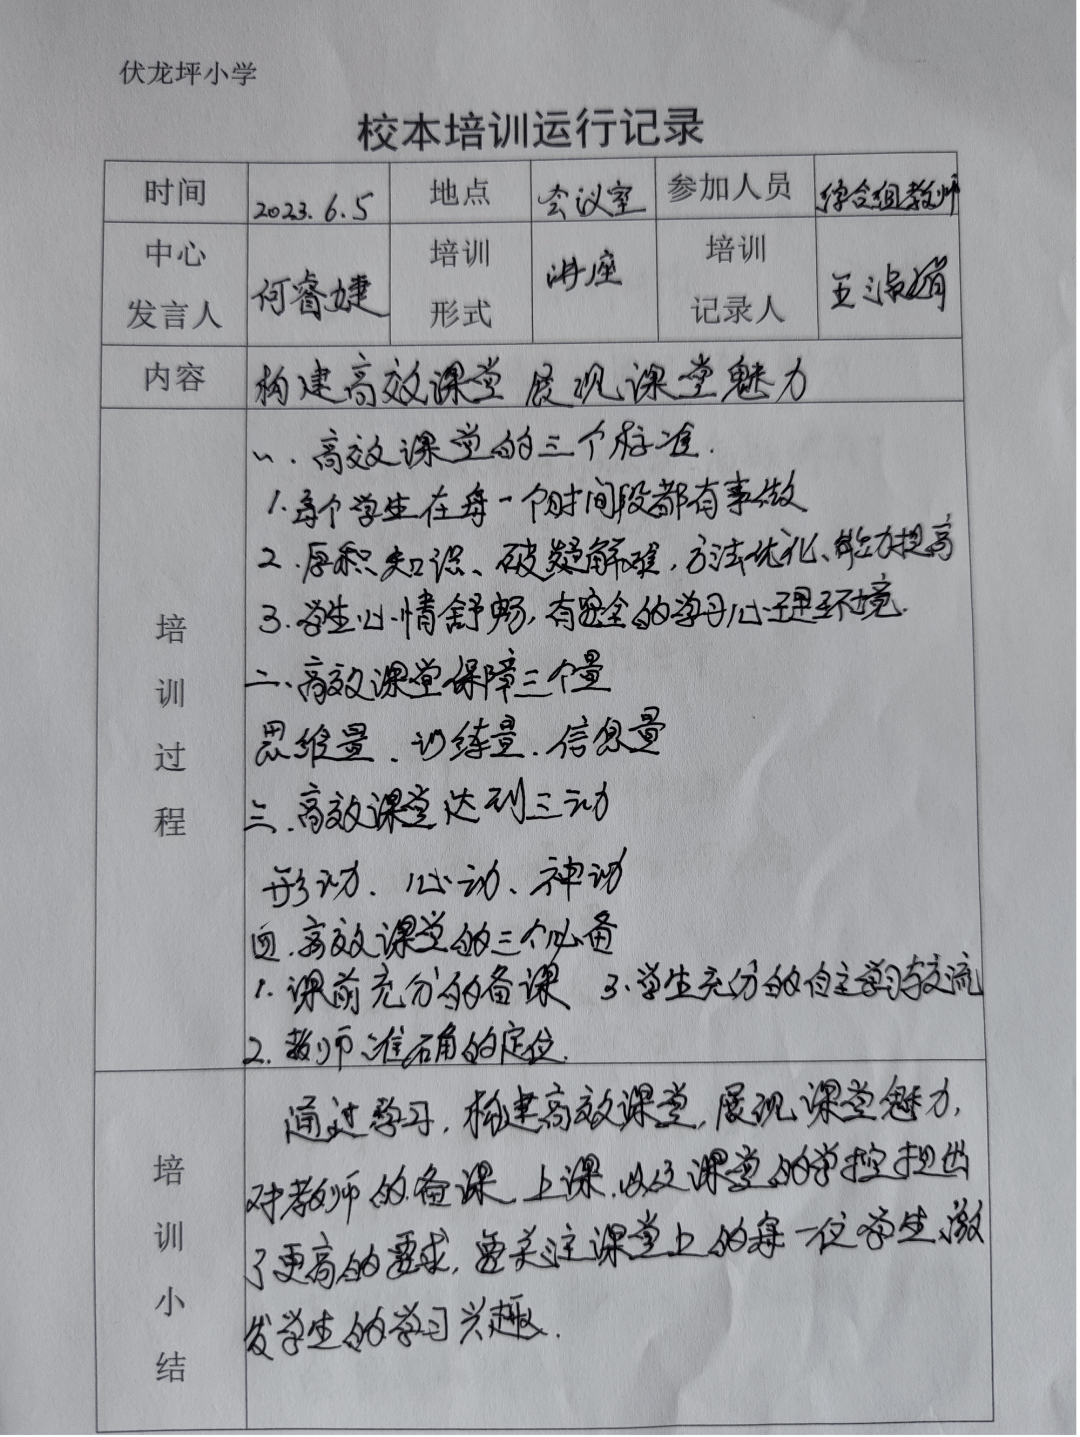 伏龙坪小学
校本培训运行记录
时间 2023.6.5 地点 会议室 参加人员 综合组教师
中心发言人 何睿婕 培训形式 讲座 培训记录人 王淑娟
内容 构建高效课堂 展现课堂魅力
培训过程
一、高效课堂的三个标准.
1.每个学生在每一个时间段都有事做
2.厚积知识、破疑解难,方法优化、能力提高
3.学生心情舒畅,有安全的学习心理环境.
二、高效课堂保障三个量
思维量、训练量、信息量
三、高效课堂达到三动
形动、心动、神动
四、高效课堂的三个必备
1.课前充分的备课 3.学生充分的自主学习与交流
2.教师准确的定位.
培训小结
通过学习,构建高效课堂,展现课堂魅力,
对教师的备课、上课、以及课堂的掌控提出
了更高的要求,要关注课堂上的每一位学生,激
发学生的学习兴趣.